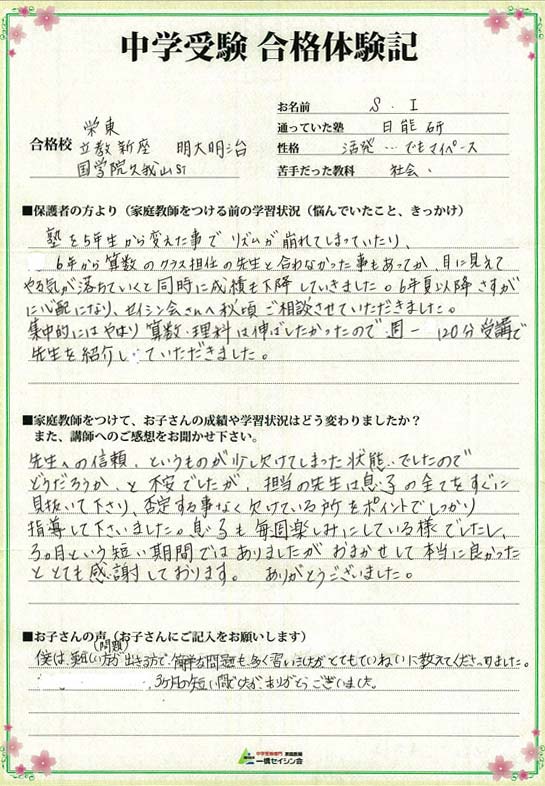 中学受験 合格体験記
お名前 S．I
通っていた塾 日能研
性格 活発…でもマイペース
苦手だった教科 社会．
合格校
栄東
立教新座 明大明治
国学院久我山ST
■保護者の方より（家庭教師をつける前の学習状況（悩んでいたこと、きっかけ）
塾を5年生から変えた事でリズムが崩れてしまっていたり、
6年から算数のクラス担任の先生と合わなかった事もあってか、目に見えて
やる気が落ちていくと同時に成績も下降していきました。6年夏以降さすが
に心配になり、セイシン会さんへ秋頃ご相談させていただきました。
集中的にはやはり算数・理科は伸ばしたかったので週一 120分受講で
先生を紹介していただきました。
■家庭教師をつけて、お子さんの成績や学習状況はどう変わりましたか？
また、講師へのご感想をお聞かせ下さい。
先生への信頼、というものが少し欠けてしまった状態でしたので
どうだろうか、と不安でしたが、担当の先生は息子の全てをすぐに
見抜いて下さり、否定する事なく欠けている所をポイントでしっかり
指導して下さいました。息子も毎週楽しみにしている様でしたし、
3ヵ月という短い期間ではありましたがおまかせして本当に良かった
ととても感謝しております。 ありがとうございました。
■お子さんの声（お子さんにご記入をお願いします）
(問題)
僕は、難しい方が出きる方で、簡単な問題も多く習いましたがとてもていねいに教えてくださいました。
3ヶ月の短い間でしたが、ありがとうございました。
中学受験専門 家庭教師
一橋セイシン会